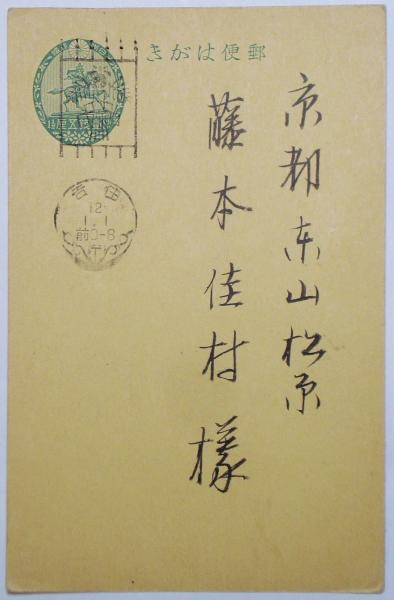 郵便はがき
京都東山松原
藤本佳村様
住吉
12
1.1
前0-8